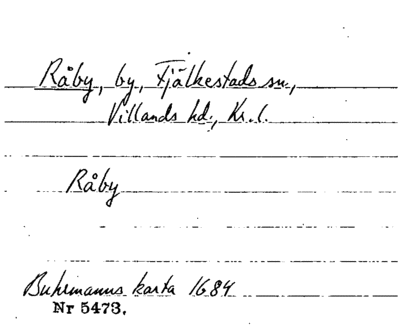 Råby, by, Fjälkestads sn.,
Villands hd., Kr.l.
Råby
Buhrmanns karta 1684
Nr 5473.